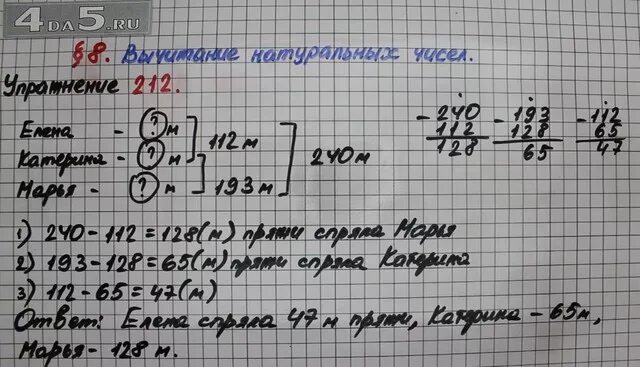 4DA5.RU
§ 8. Вычитание натуральных чисел.
Упражнение 212.
Елена - ? м
Катерина - ? м
Марья - ? м
112 м
193 м
240 м
- 240 - 193 - 112
112 128 65
128 65 47
1) 240 - 112 = 128 (м) пряжи спряла Марья
2) 193 - 128 = 65 (м) пряжи спряла Катерина
3) 112 - 65 = 47 (м)
Ответ: Елена спряла 47 м пряжи, Катерина - 65 м,
Марья - 128 м.